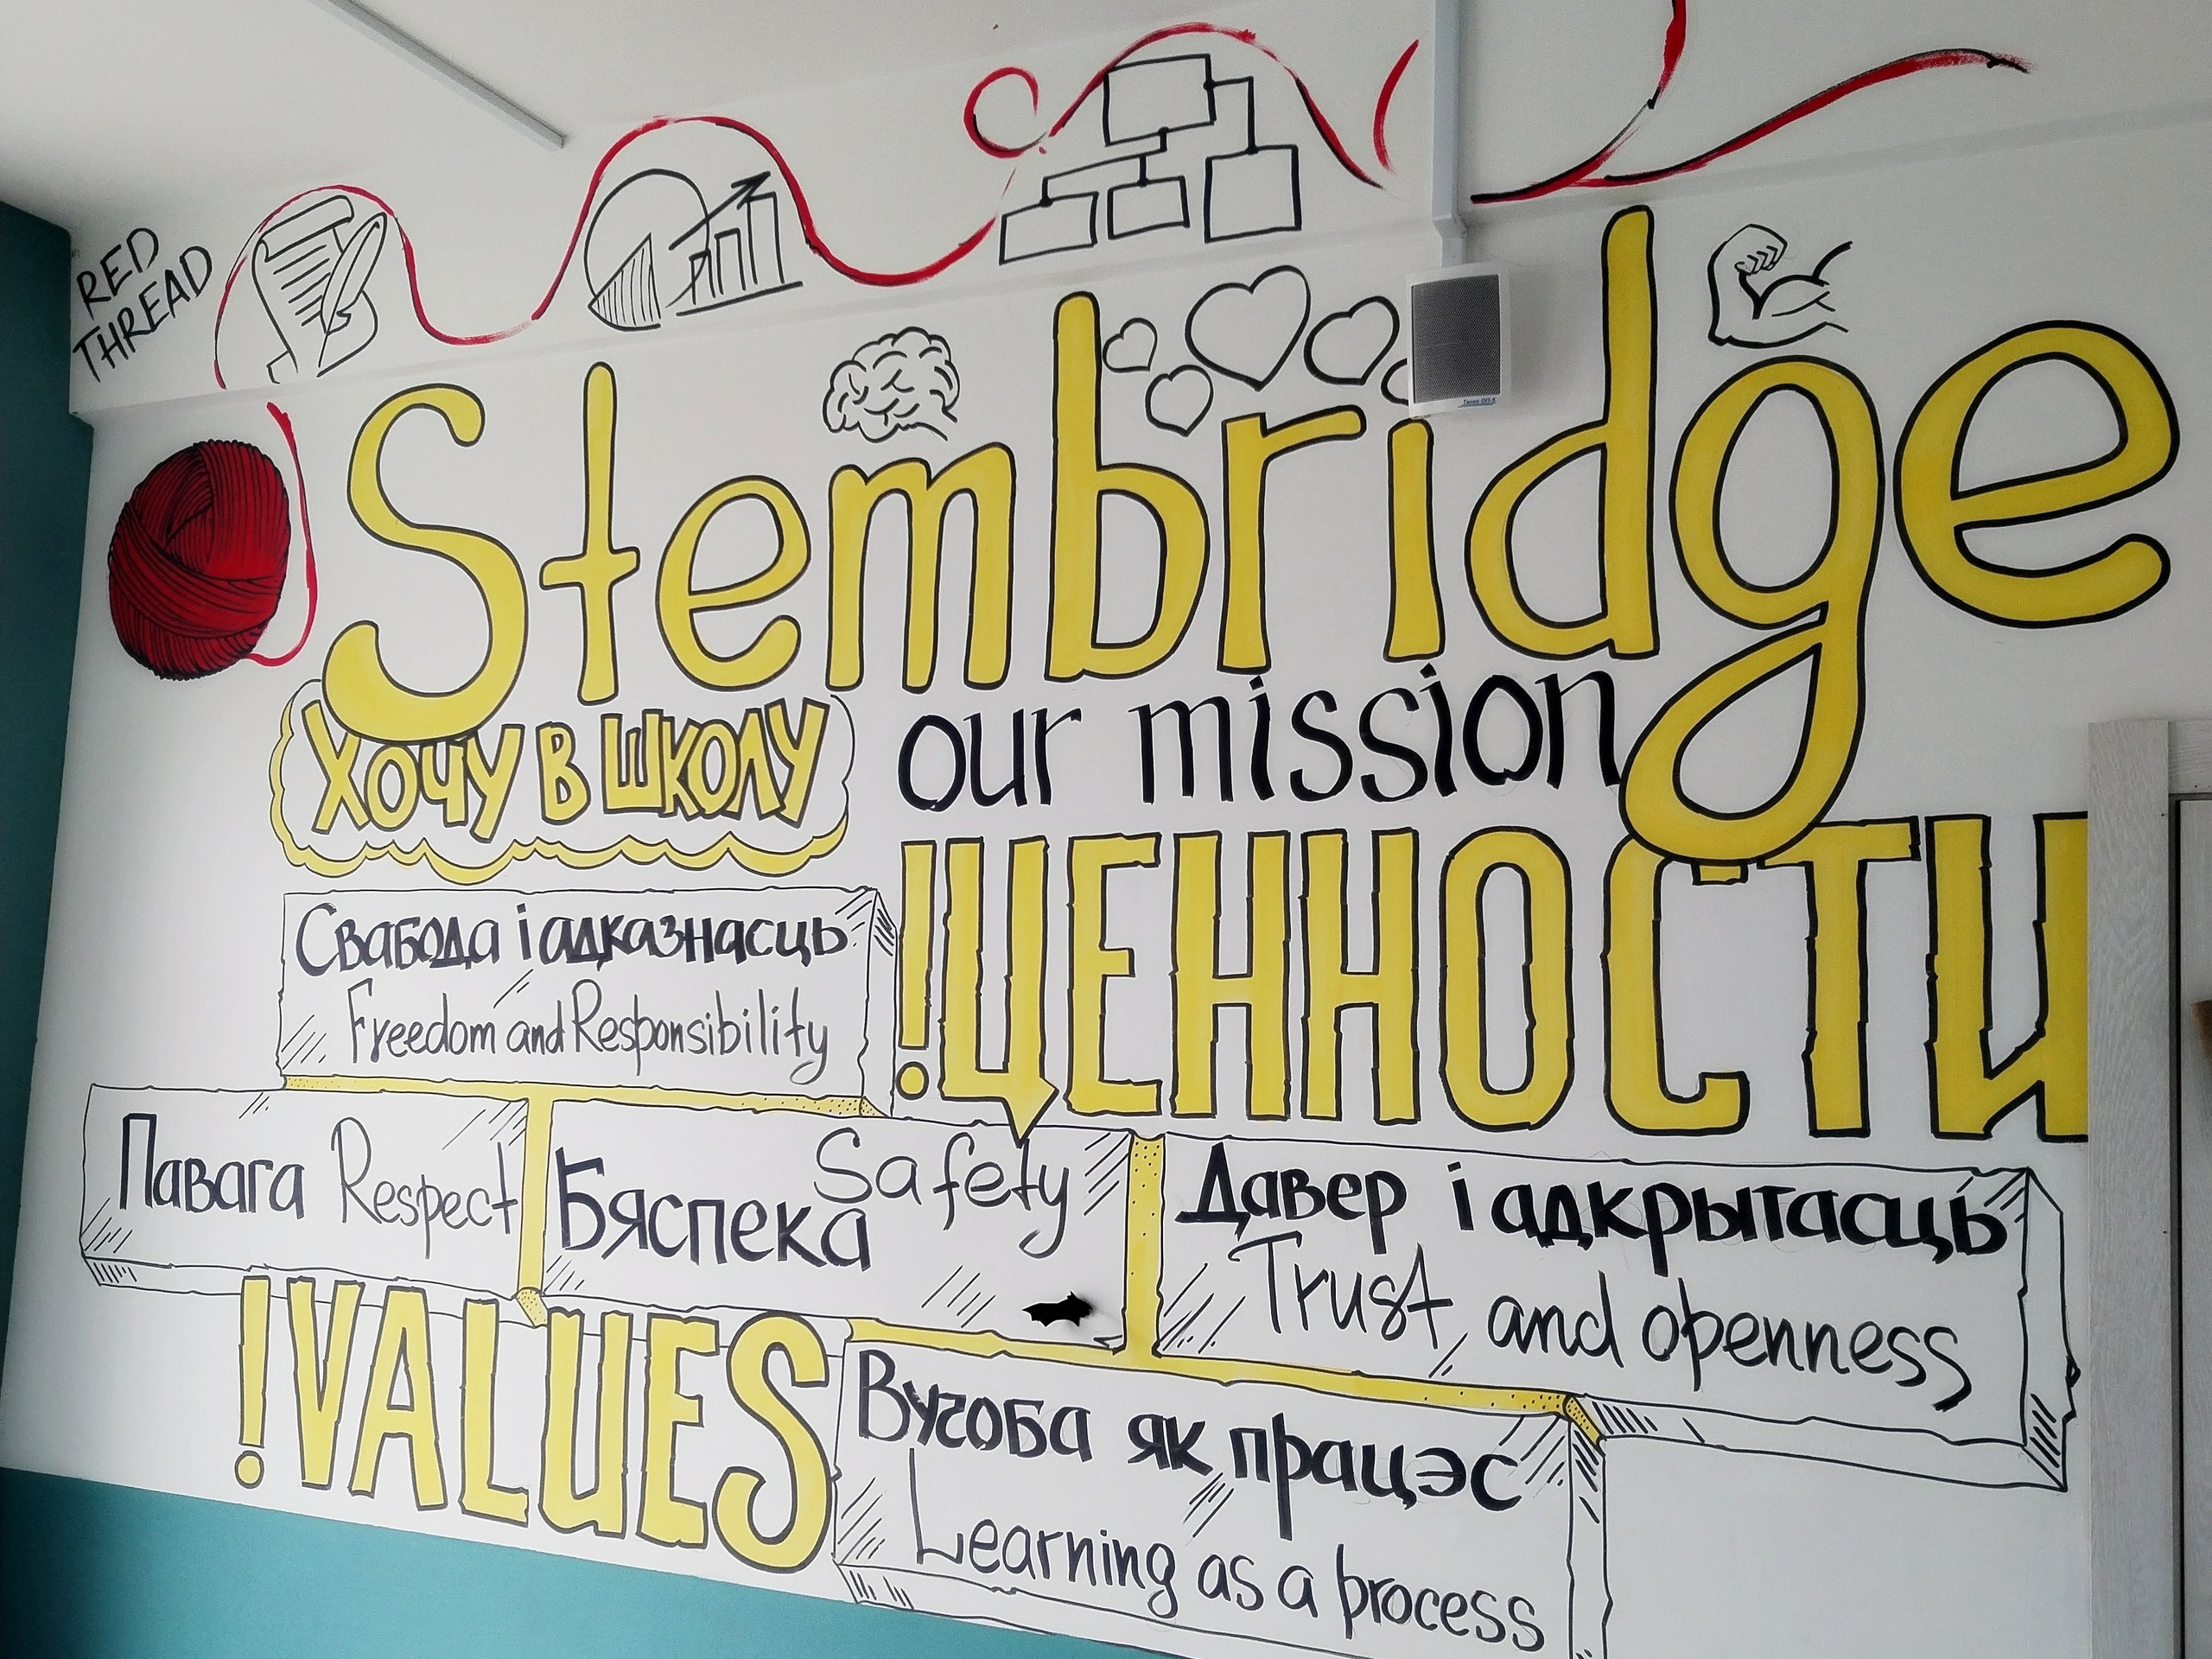 RED
THREAD
Stembridge
ХОЧУ В ШКОЛУ
our mission
!ЦЕННОСТИ
Свабода і адказнасць
Freedom and Responsibility
Павага Respect
Бяспека Safety
Давер і адкрытасць
Trust and openness
!VALUES
Вучоба як працэс
Learning as a process